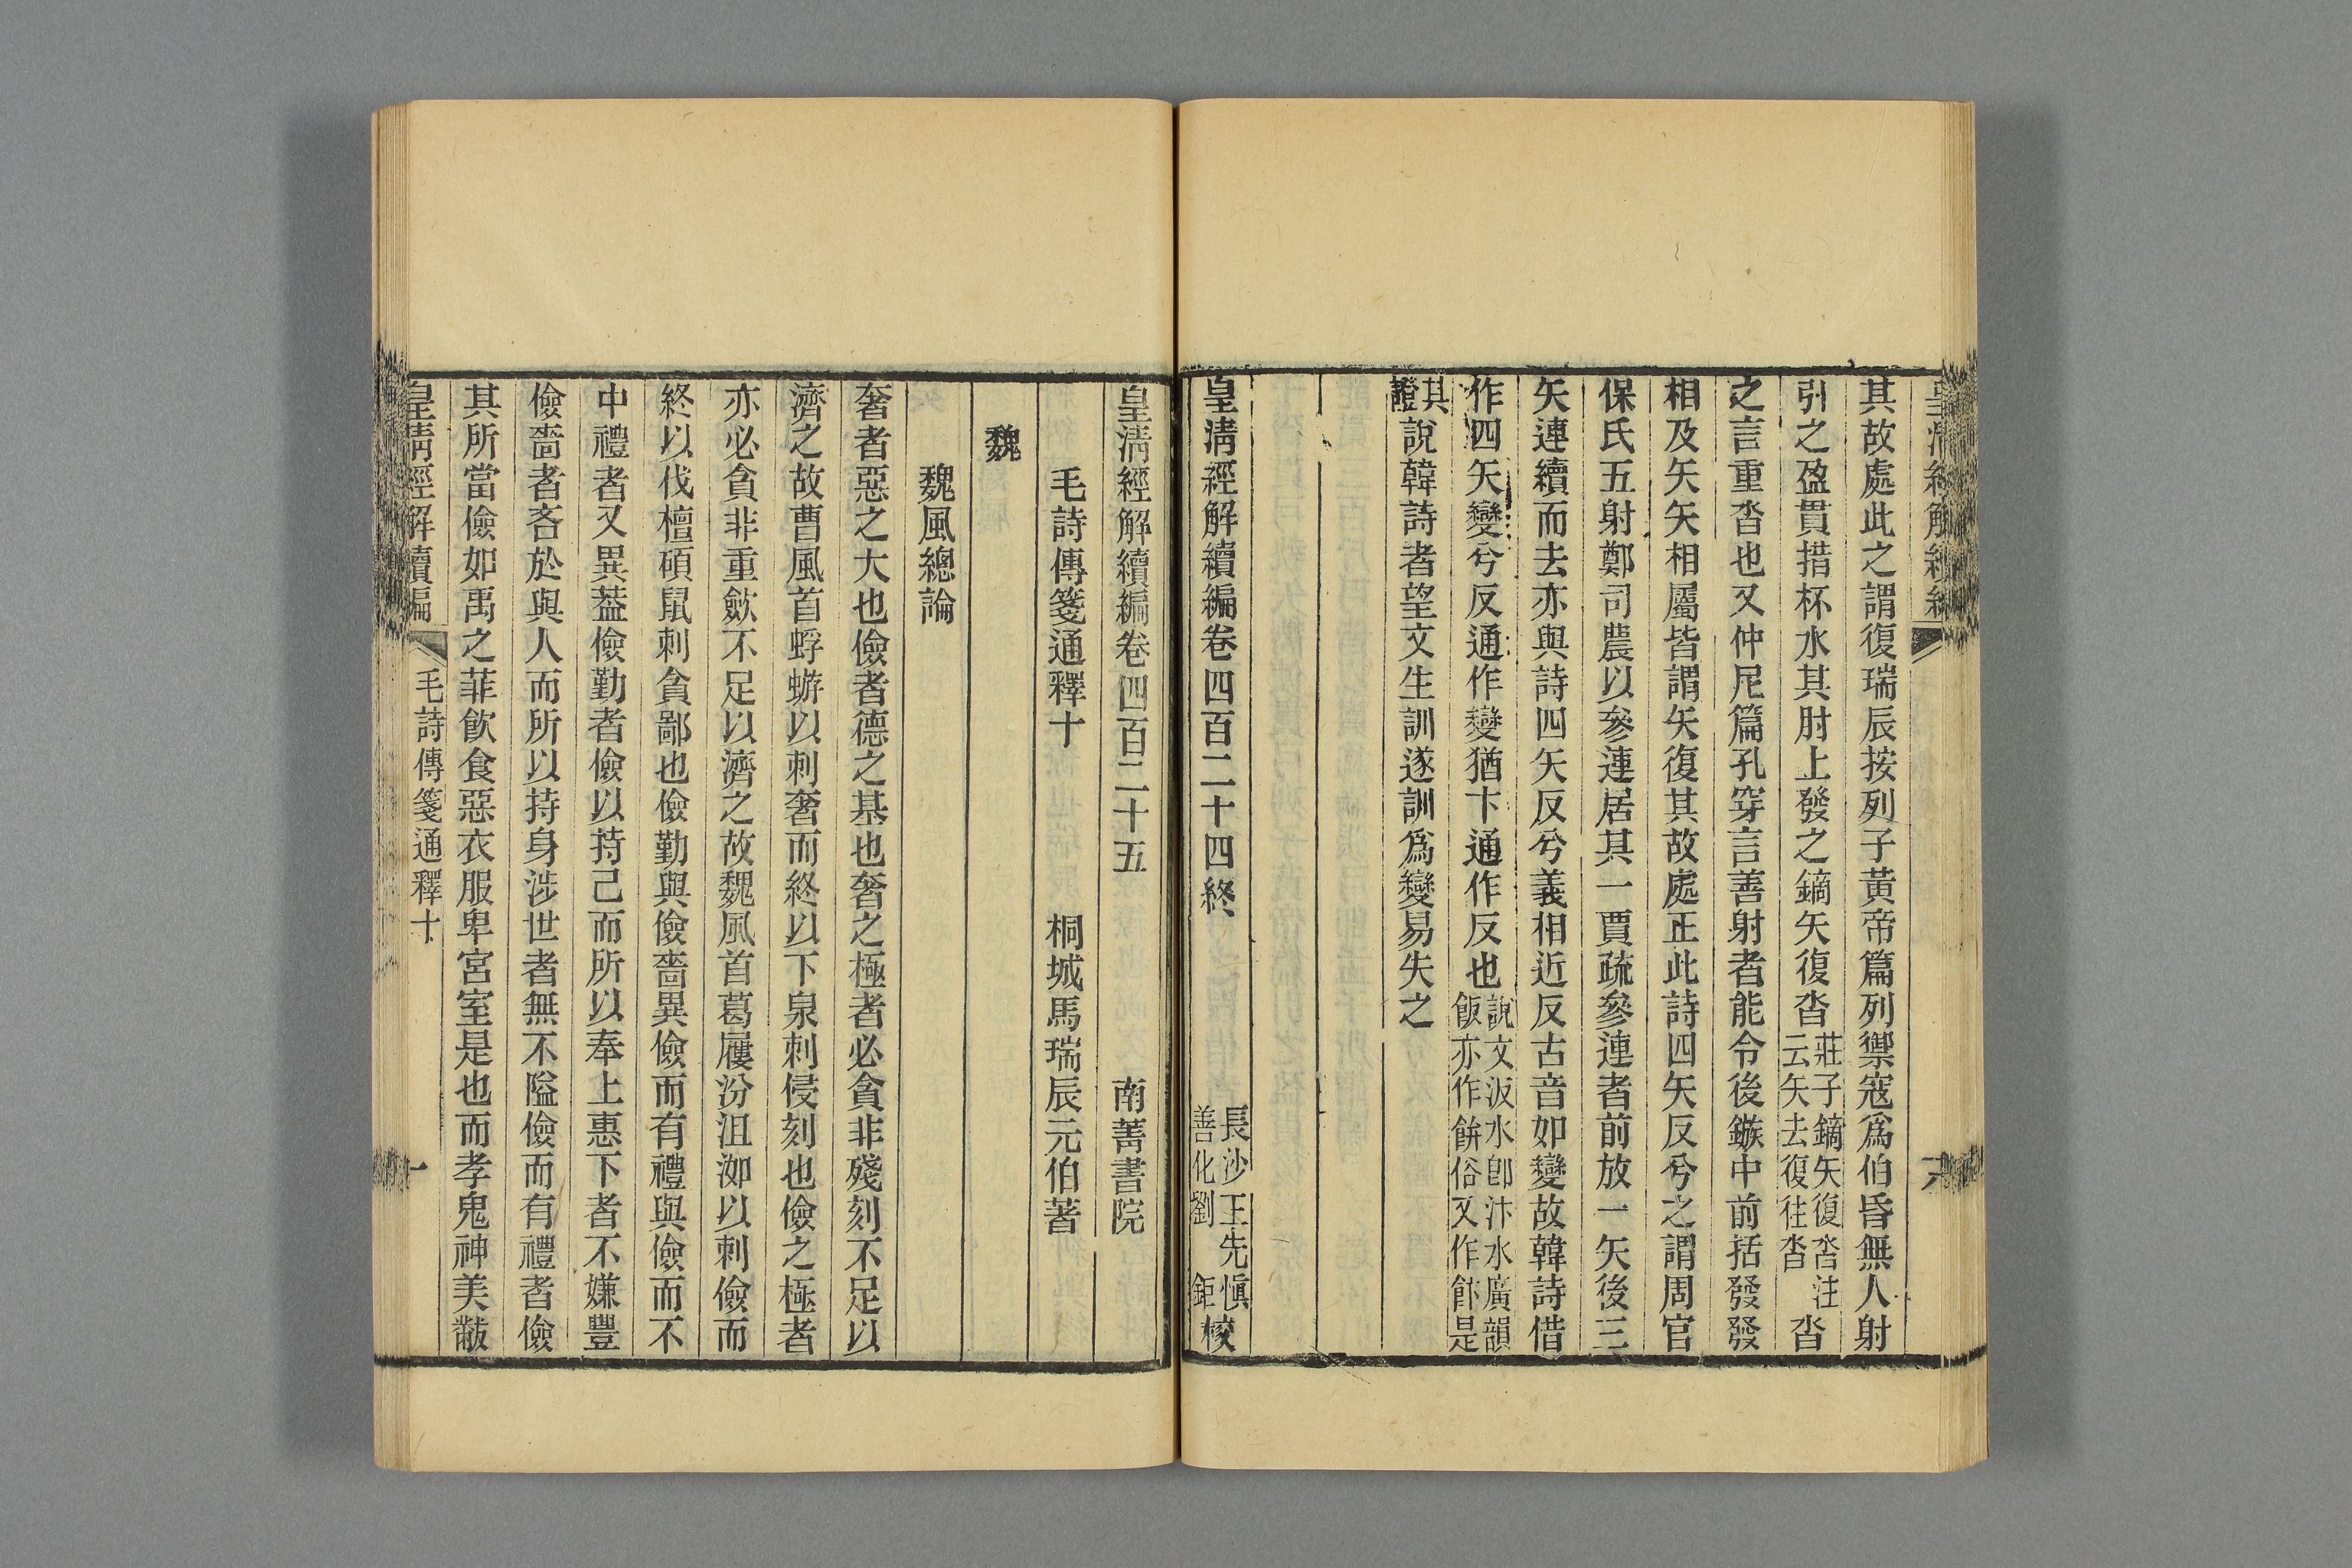 其故處此之謂復瑞辰按列子黃帝篇列禦寇爲伯昏無人射
引之盈貫措杯水其肘上發之鏑矢復沓莊子鏑矢復沓注云矢去復往沓沓
之言重沓也又仲尼篇孔穿言善射者能令後鏃中前括發發
相及矢矢相屬皆謂矢復其故處正此詩四矢反兮之謂周官
保氏五射鄭司農以參連居其一賈疏參連者前放一矢後三
矢連續而去亦與詩四矢反兮義相近反古音如變故韓詩借
作四矢變兮反通作變猶卞通作反也說文汳水卽汴水廣韻飯亦作餠俗又作飰是
其證說韓詩者望文生訓遂訓爲變易失之
皇淸經解續編卷四百二十四終
長沙王先愼
善化劉鉅校
皇淸經解續編卷四百二十五
南菁書院
毛詩傳箋通釋十
桐城馬瑞辰元伯著
魏
魏風總論
奢者惡之大也儉者德之基也奢之極者必貪非殘刻不足以
濟之故曹風首蜉蝣以刺奢而終以下泉刺侵刻也儉之極者
亦必貪非重斂不足以濟之故魏風首葛屨汾沮洳以刺儉而
終以伐檀碩鼠刺貪鄙也儉勤與儉嗇異儉而有禮與儉而不
中禮者又異葢儉勤者儉以持己而所以奉上惠下者不嫌豐
儉嗇者吝於與人而所以持身涉世者無不隘儉而有禮者儉
其所當儉如禹之菲飮食惡衣服卑宮室是也而孝鬼神美黻
皇淸經解續編
毛詩傳箋通釋十
一